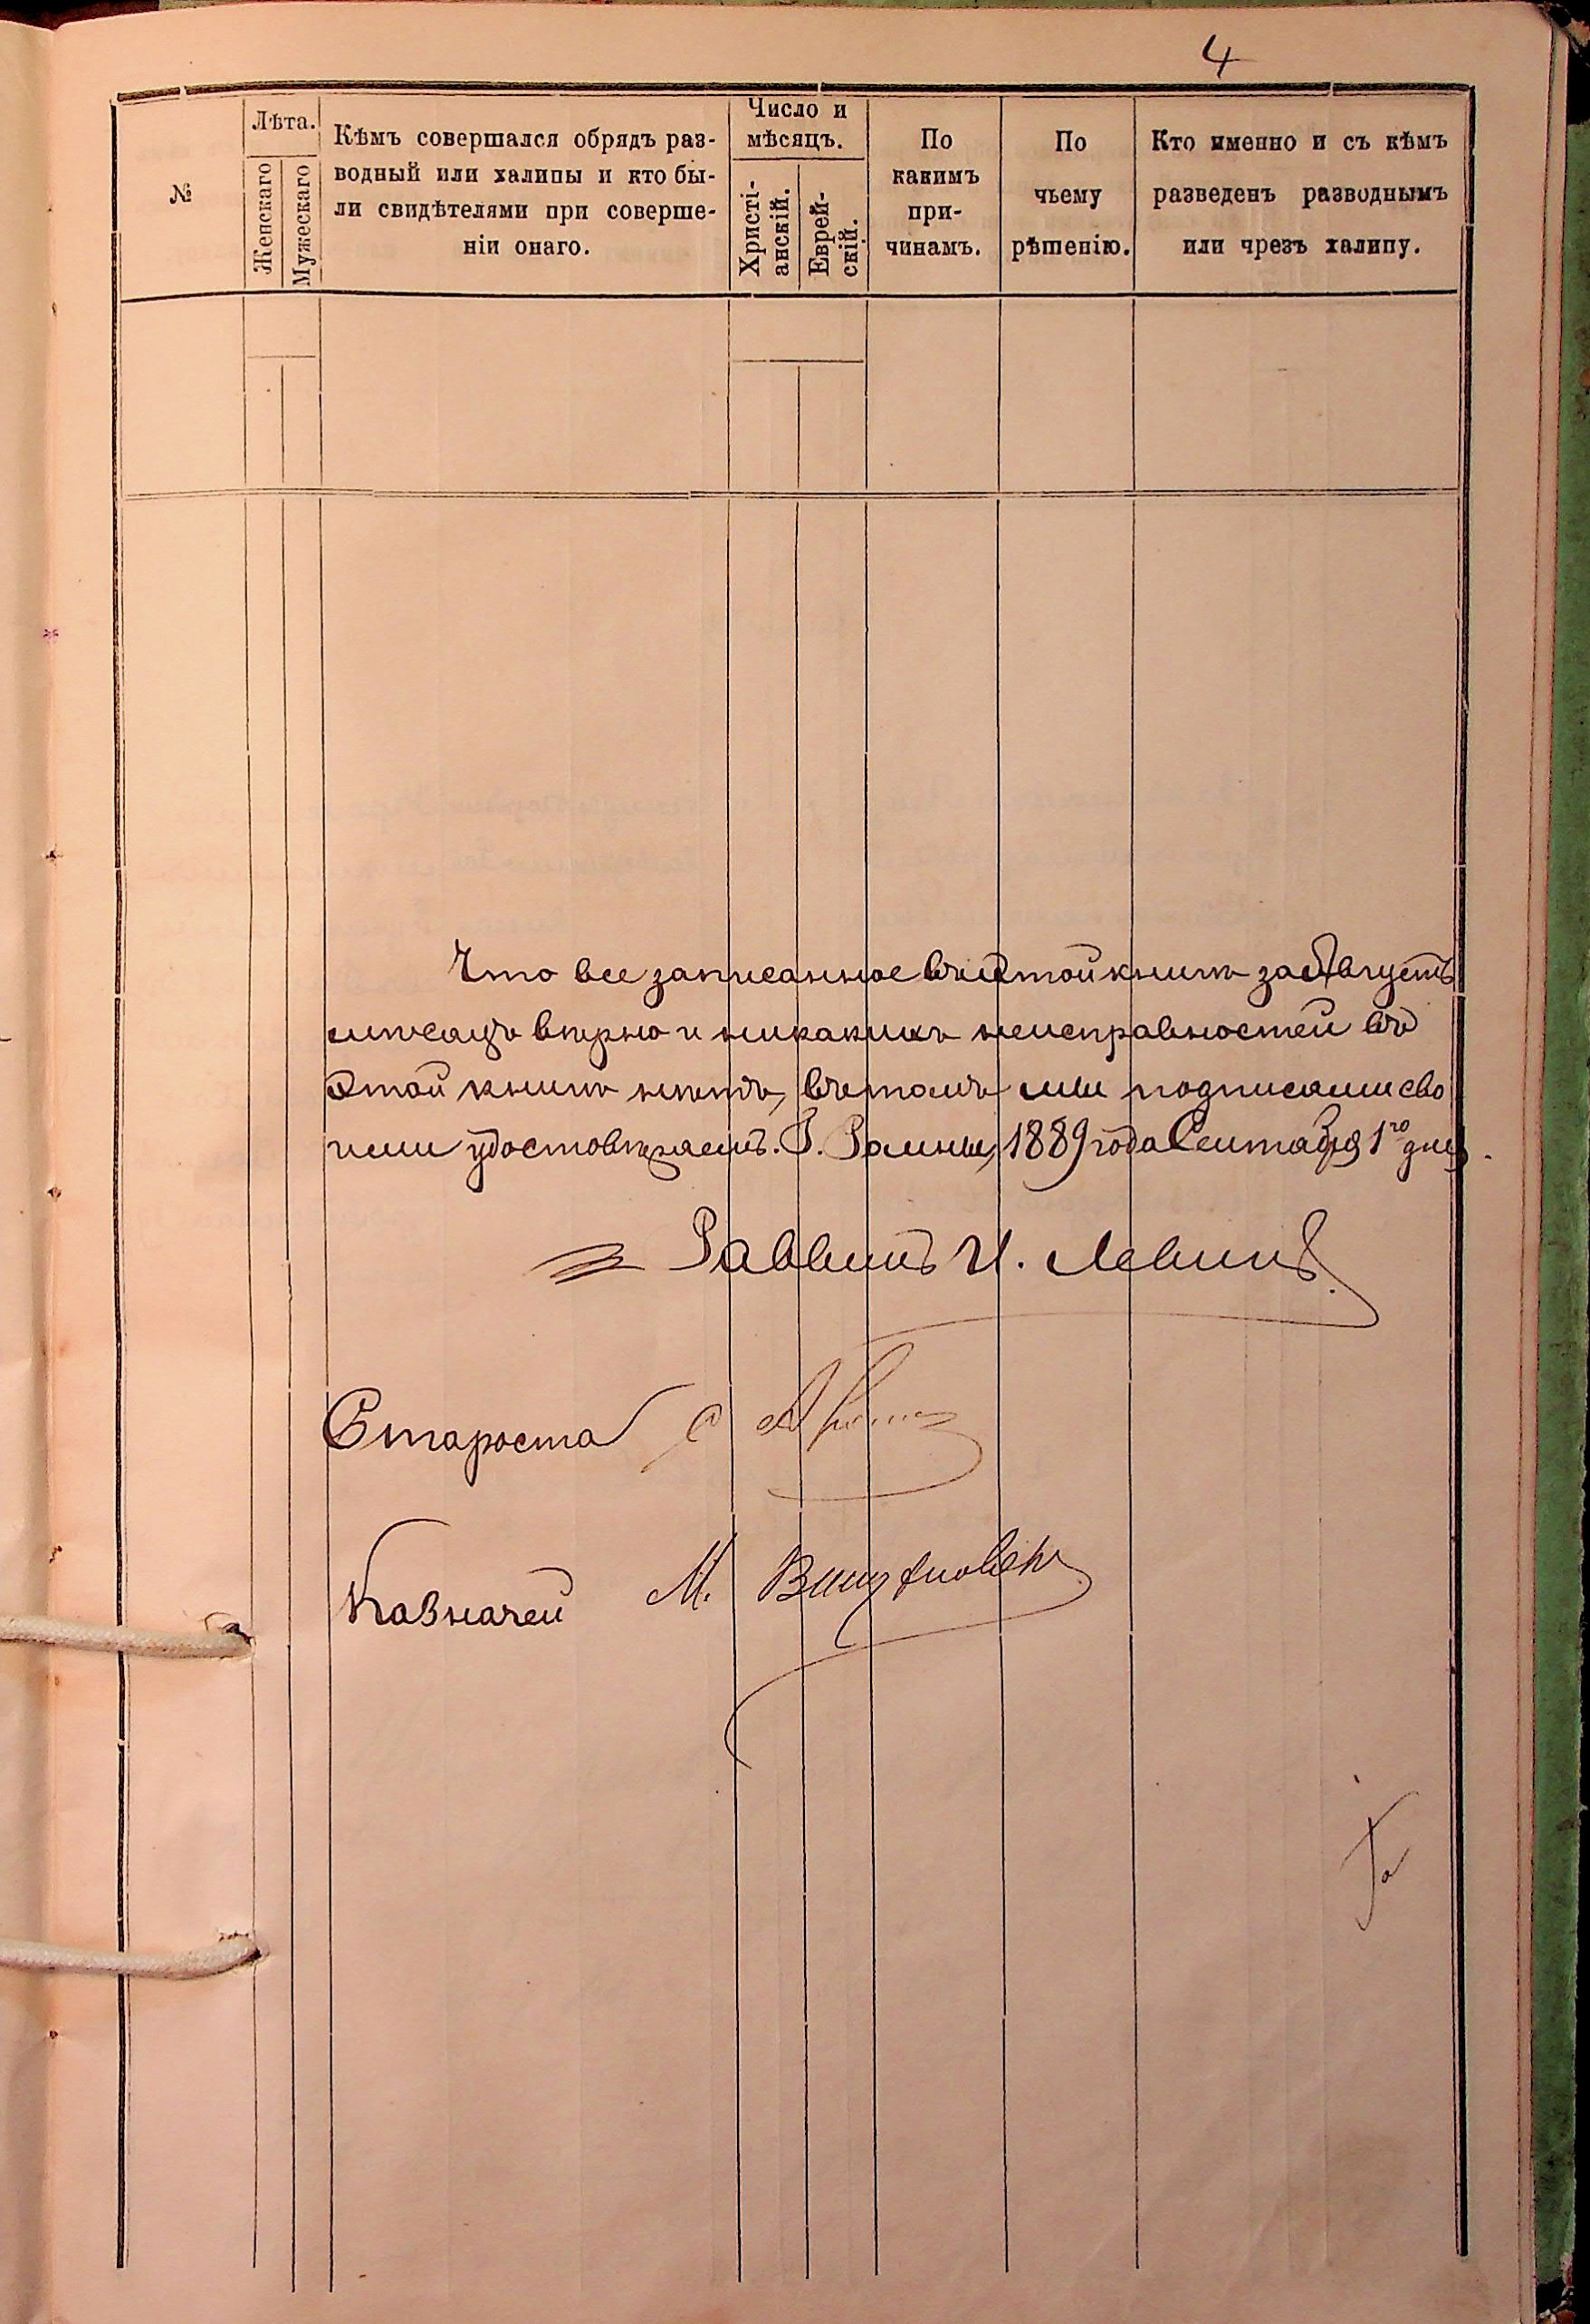 4
№
Лѣта.
Женскаго
Мужескаго
Кѣмъ совершался обрядъ раз-
водный или халипы и кто бы-
ли свидѣтелями при соверше-
ніи онаго.
Число и
мѣсяцъ.
Христі-
анскій.
Еврей-
скій.
По
какимъ
при-
чинамъ.
По
чьему
рѣшенію.
Кто именно и съ кѣмъ
разведенъ разводнымъ
или чрезъ халипу.
Что все записанное въ этой книгѣ за Августъ
мѣсяцъ вѣрно и никакихъ неисправностей въ
этой книгѣ нѣтъ, въ томъ мы подписами сво
ими удостовѣряемъ. Г. Ромны, 1889 года Сентября 1го дня.
Раввинъ И. Левинъ.
Староста
Казначей М.